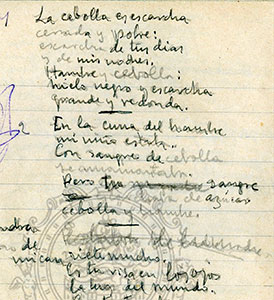 La cebolla es escarcha
cerrada y pobre:
escarcha de tus días
y de mis noches.
Hambre y cebolla:
hielo negro y escarcha
grande y redonda.
2 En la cuna del hambre
mi niño estaba.
Con sangre de cebolla
se amamantaba.
Pero tu sangre
de azúcar
cebolla y hambre.
de
ríete mucho.
Es tu risa en los ojos
la luz del mundo.